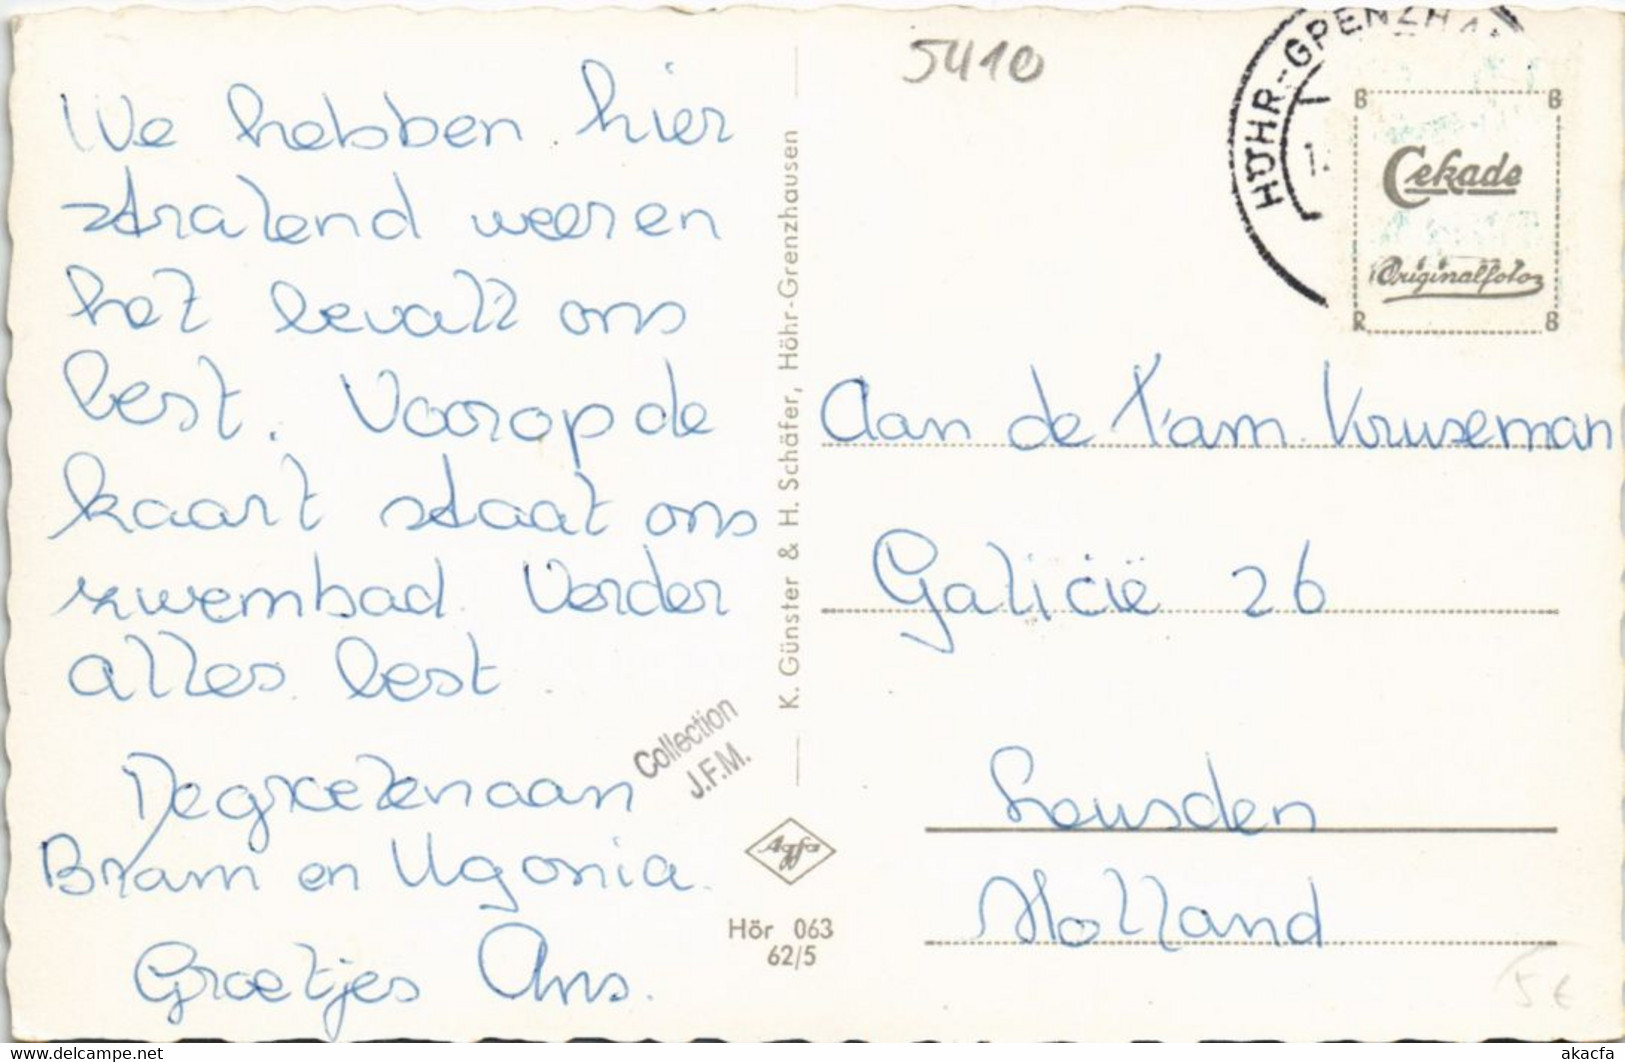 We hebben hier
stralend weer en
het bevalt ons
best. Voorop de
kaart staat ons
zwembad. Verder
alles best.
De groeten aan
Bram en Ugonia.
Groetjes Ans.
Collection
J.F.M.
K. Günster & H. Schäfer, Höhr-Grenzhausen
Agfa
Hör 063
62/5
5410
HÖHR-GRENZHA
Cekade
Originalfoto
Aan de Fam. Kruseman
Galicië 26
Leusden
Holland
5 €
akacfa